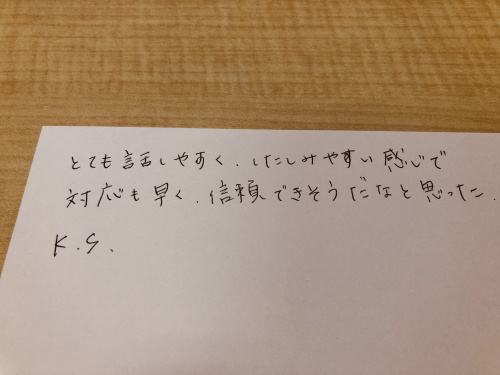 とても話しやすく、したしみやすい感じで
対応も早く、信頼できそうだなと思った.
K.S.